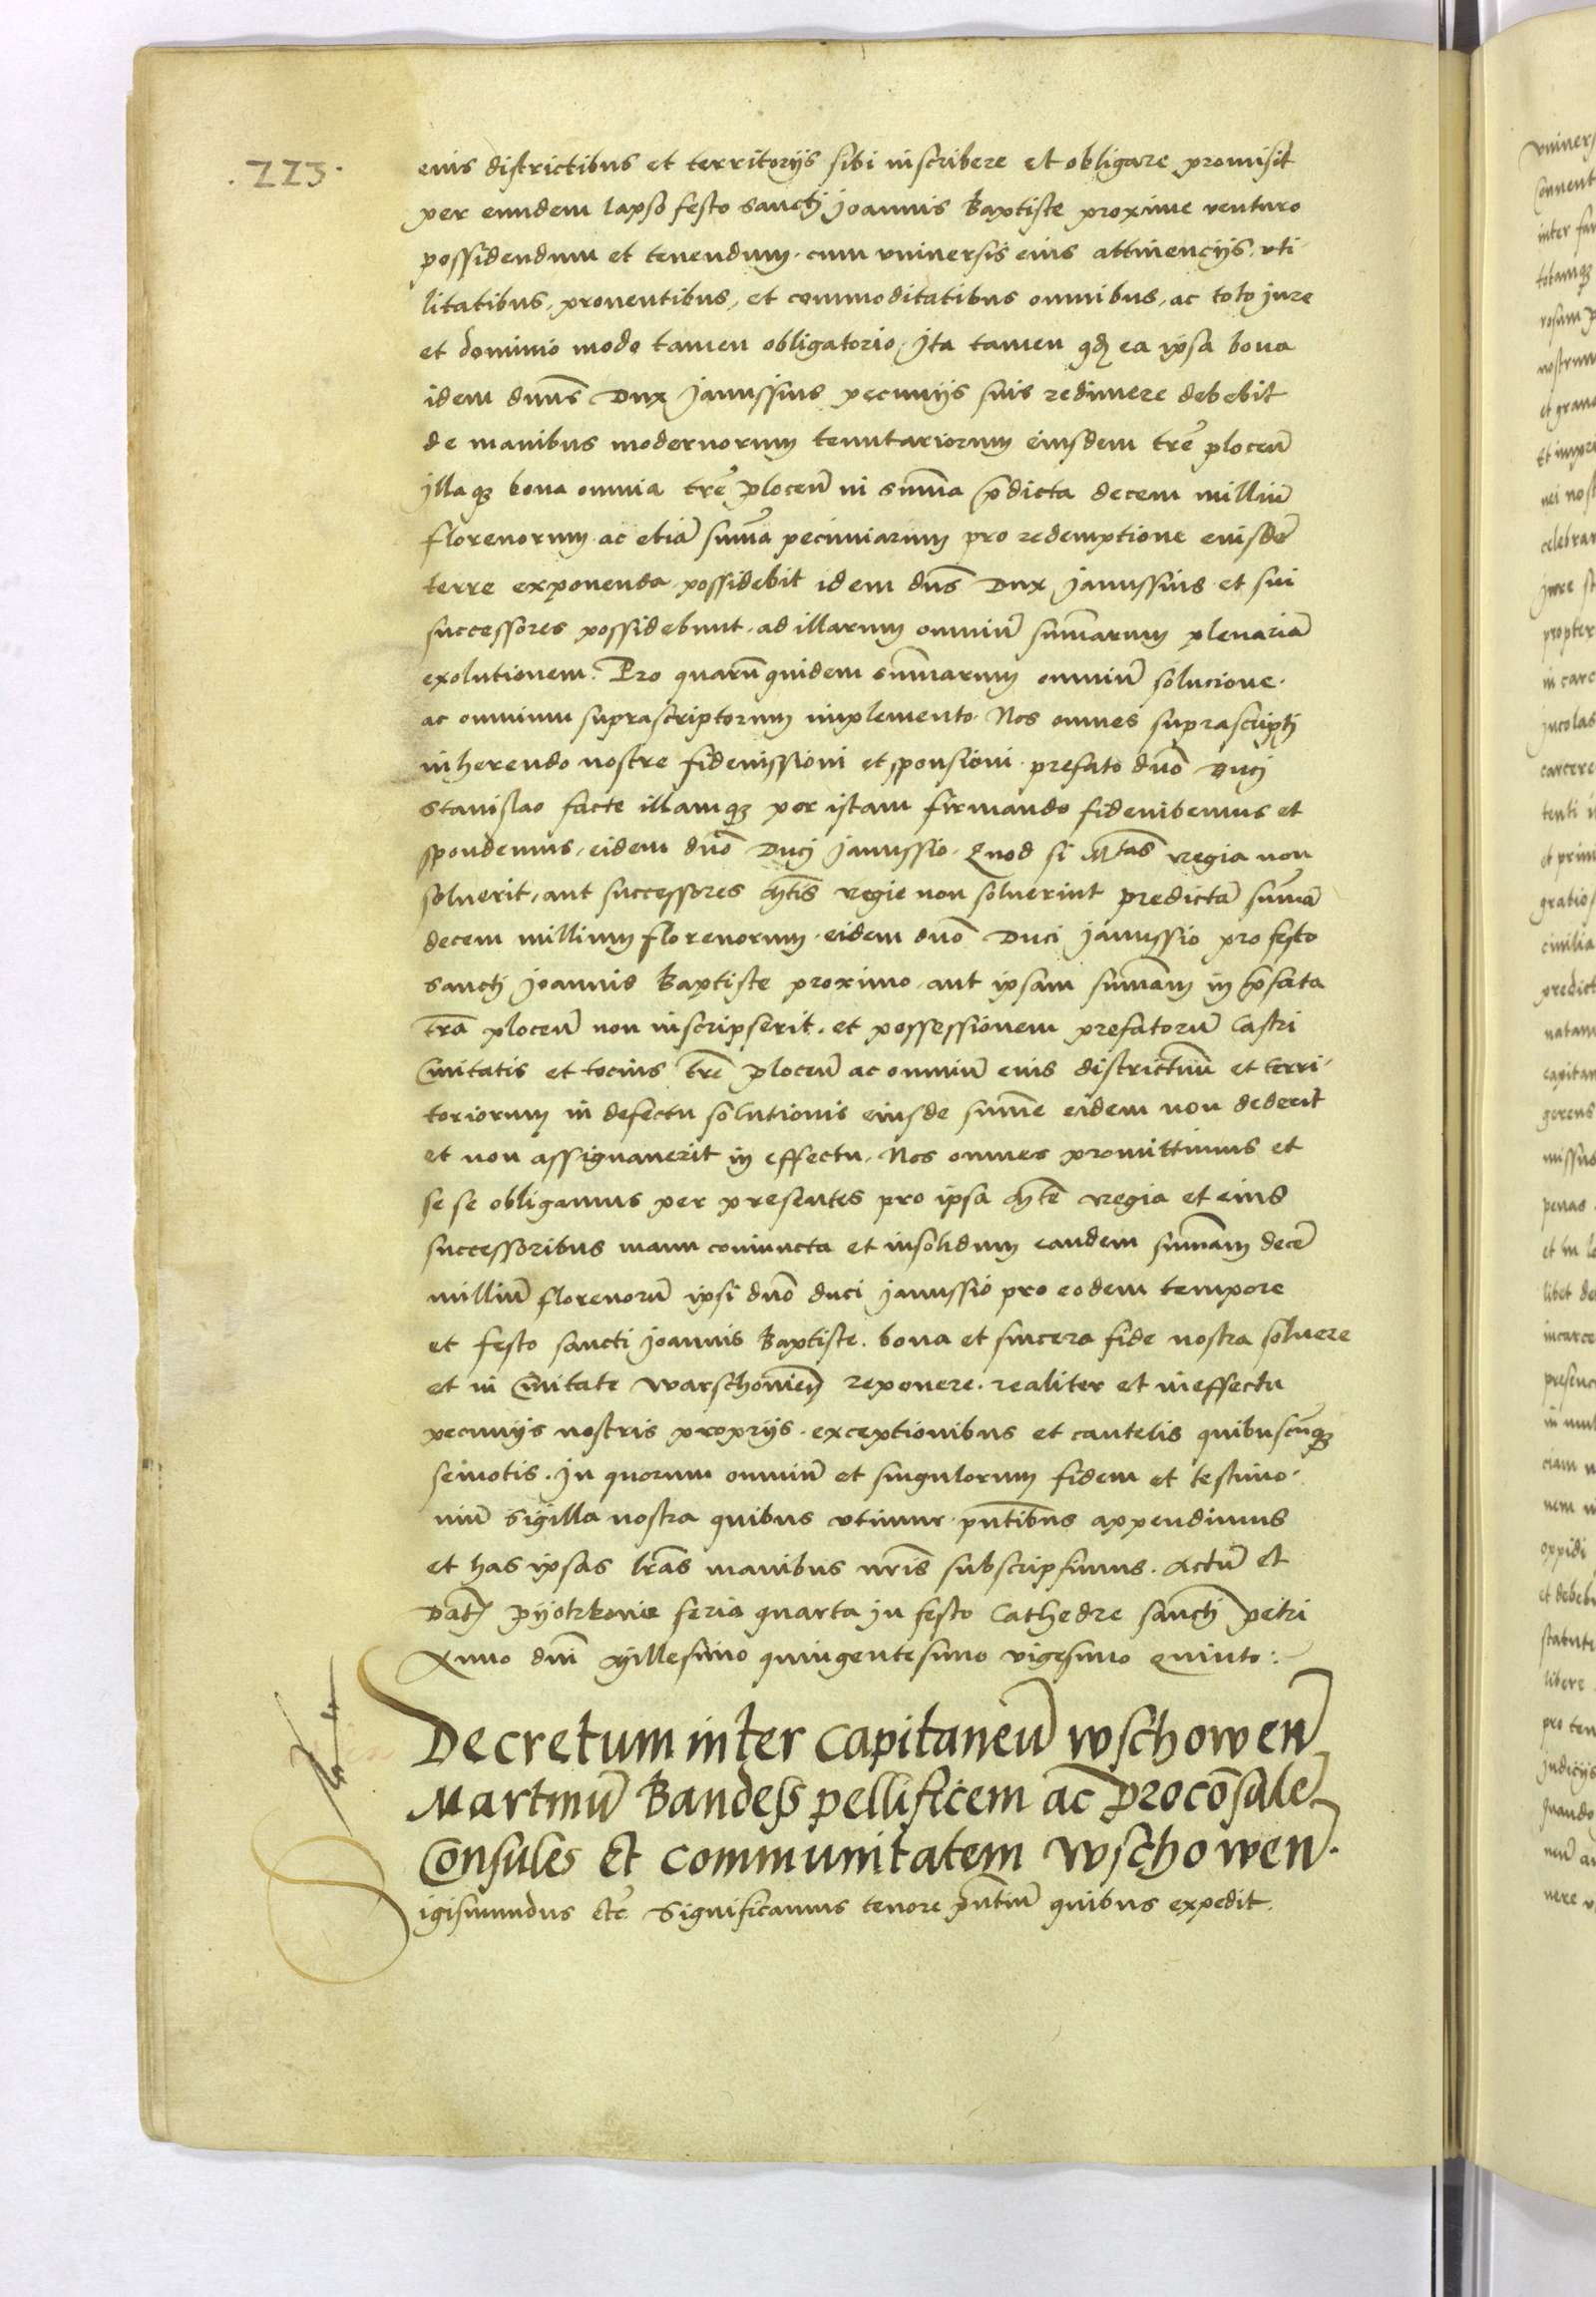 .223.
eius districtibus et territorijs sibi inscribere et obligare promisit
per eundem lapso festo sanctj joannis Baptiste proxime venturo
possidendum et tenendum. cum vniuersis eius attinencijs, vti-
litatibus, prouentibus, et commoditatibus omnibus, ac toto jure
et dominio modo tamen obligatorio, jta tamen qd ea ipsa bona
idem dnus Dux janussius pecunijs suis redimere debebit
de manibus modernorum tenutariorum eiusdem tre plocen
jllaqȝ bona omnia tre plocen in summa pdicta decem milliu
florenorum ac etia suma pecuniarum pro redemptione eiusde
terre exponenda possidebit idem dns Dux janussius et sui
successores possidebunt, ad illarum omniu sumarum plenaria
exolutionem. Pro quaru quidem sumarum omniu solucione.
ac omnium suprascriptorum implemento. Nos omnes suprascriptj
inherendo nostre fideiussioni et sponsioni prefato duo Ducj
Stanislao facte illamqȝ per istam firmando fideiubemus et
spondemus, eidem duo Ducj janussio. Quod si Mtas regia non
soluerit, aut successores Mtis regie non soluerint predicta suma
decem millium florenorum eidem duo Duci janussio pro festo
sanctj joannis Baptiste proximo, aut ipsam sumam in pfata
tra plocen non inscripserit, et possessionem prefatoru Castri
Ciuitatis et tocius tre plocen ac omniu eius districtuu et terri-
toriorum in defectu solutionis eiusde sume eidem non dederit
et non assignauerit in effectu, Nos omnes promittimus et
se se obligamus per presentes pro ipsa Mte regia et eius
successoribus manu coniuncta et insolidum eandem sumam dece
milliu florenoru ipsi duo duci janussio pro eodem tempore
et festo sancti joannis Baptiste. bona et sincera fide nostra soluere
et in Ciuitate warschouien reponere. realiter et in effectu
pecunijs nostris proprijs. exceptionibus et cautelis quibuscunqȝ
semotis. In quorum omniu et singulorum fidem et testimo-
niu sigilla nostra quibus vtimur. pntibus appendimus
et has ipsas lras manibus nris subscripsimus. Actu et
Dat Pijotrkouie feria quarta in festo Cathedre sanctj petri
Anno dni Millesimo quingentesimo vigesimo quinto:
Decretum inter capitaneu wschowen
Martinu Bandess pellificem ac proconsule
Consules Et communitatem wschowen.
Sigismundus Etc Significamus tenore pntiu quibus expedit.